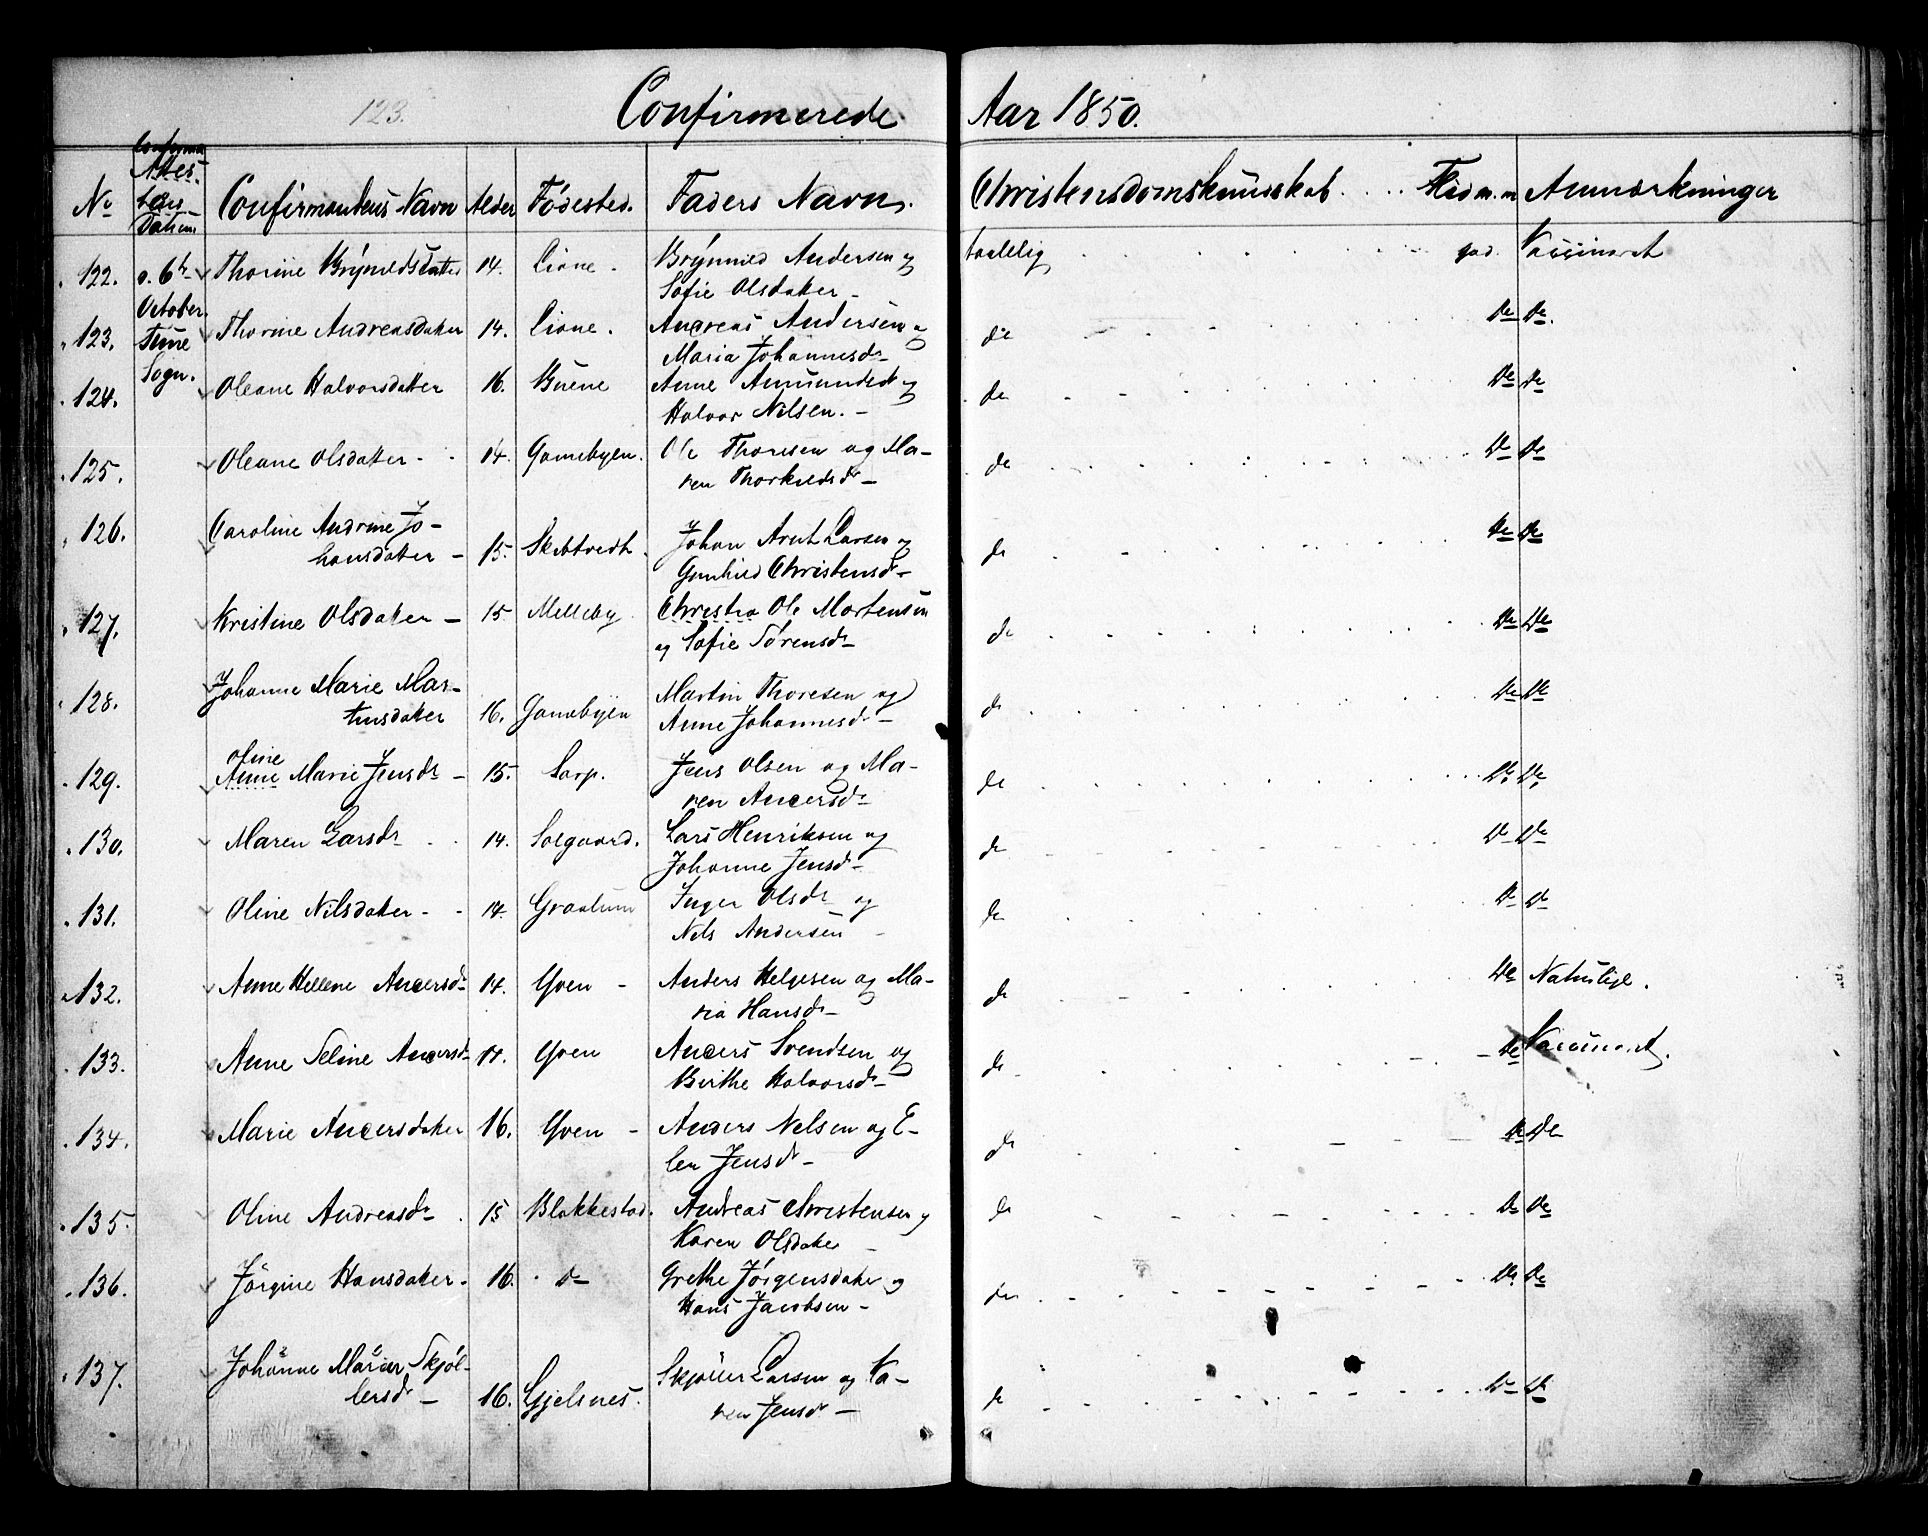 123.
Confirmerede Aar 1850.
No
Confirma
Attes
Datum
Confirmantens Navn
Alder
Födested.
Faders Navn.
Christensdomskundskab
Anmærkninger
122. d. 6te October Tune Sogn. Thorine Brÿnildsdatter 14. Lione. Brÿnnild Andersen og
Sofie Olsdatter taalelig god. Vaccineret
123. Thorine Andreasdatter 14. Lione. Andreas Andersen og
Maria Johannesdr do Do Do.
124. Oleane Halvorsdatter 16. Buene Anne Amundsdr og
Halvor Nilsen. do Do Do
125. Oleane Olsdatter 14. Gamebyen. Ole Thoresen og Ma-
ren Thorkildsdr do Do Do
126. Caroline Andrine Jo-
hansdatter 15. Skibtvedt. Johan Arnt Larsen og
Gunhild Christensdr do Do Do
127. Kristine Olsdatter 15 Melleby Christia Ole Mortensen
og Sofie Sörensdr do Do Do
128. Johanne Marie Mar-
tinsdatter 16. Gamebyen Martin Thoresen og
Anne Johannesdr do Do Do
129. Oline
Anne Marie Jensdr 15. Sarp. Jens Olsen og Ma-
ren Andersdr do Do. Do.
130. Maren Larsdr 14. Solgaard. Lars Henriksen og
Johanne Jensdr do Do Do
131. Oline Nilsdatter 14. Graalum Inger Olsdr og
Nels Andersen do Do Do
132. Anne Hellene Andersdr 14. Yven Anders Helgesen og Ma-
ria Hansdr do Do Naturlige.
133. Anne Seline Andersdr 14. Yven Anders Svendsen og
Birthe Halvorsdr do Do Vaccineret.
134. Marie Andersdatter 16. Yven Anders Nelsen og E-
len Jensdr do Do Do
135. Oline Andreasdr 15 Blakkestad. Andreas Christensen og
Karen Olsdatter do Do Do
136. Jörgine Hansdatter 16. do Grethe Jörgensdatter og
Hans Jacobsen do Do. Do
137. Johanne Marie Skjöl-
lersdr 16. Gjelsnes. Skjöller Larsen og Ka-
ren Jensdr do Do Do